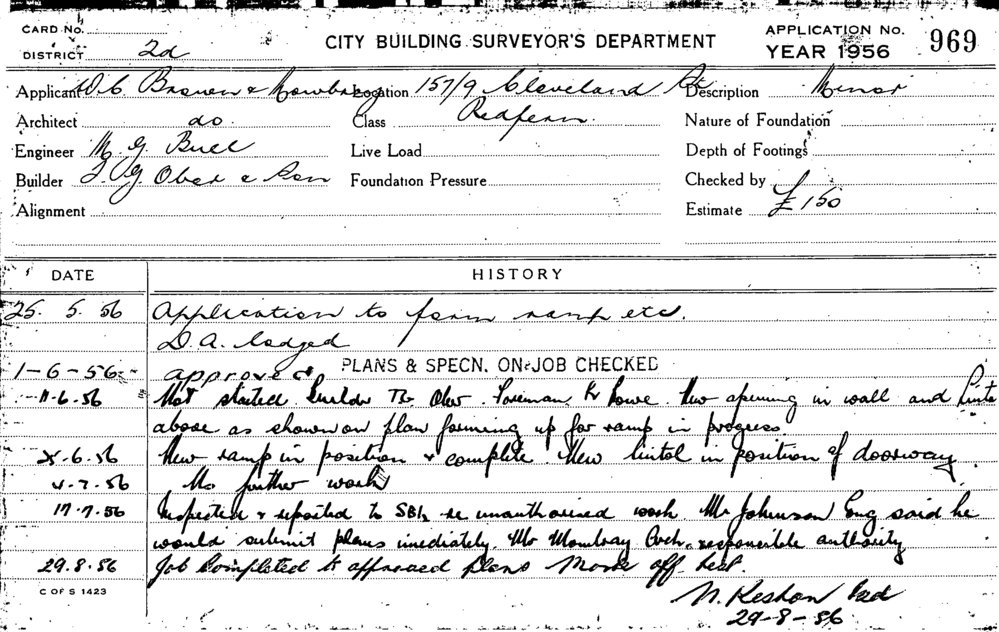 CARD No.
DISTRICT 2d
CITY BUILDING SURVEYOR'S DEPARTMENT
APPLICATION No. 969
YEAR 1956
Applicant W. C. Brown & Mowbray Location 157/9 Cleveland St Description Minor
Architect do Class Redfern. Nature of Foundation
Engineer M. G. Bull Live Load Depth of Footings
Builder J. G. Ober & Son Foundation Pressure Checked by
Alignment Estimate £ 150
DATE HISTORY
25. 5. 56 Application to form ramp etc.
D.A. lodged
1-6-56 approved PLANS & SPECN. ON JOB CHECKED
11-6.56 Not started. Builder Ober. Foreman Mr Lowe. New opening in wall and
above as shown on plan forming up for ramp in progress
6.56 New ramp in position & complete. New lintol in position of doorway.
4.7.56 No further work
17.7.56 Inspected & reported to SBI, re unauthorised work Mr Johnson Eng said he
would submit plans imediately. Mr Mowbray Arch. responsible authority
29.8.56 Job Completed to approved plans Mark off
29-8-56
C OF S 1423